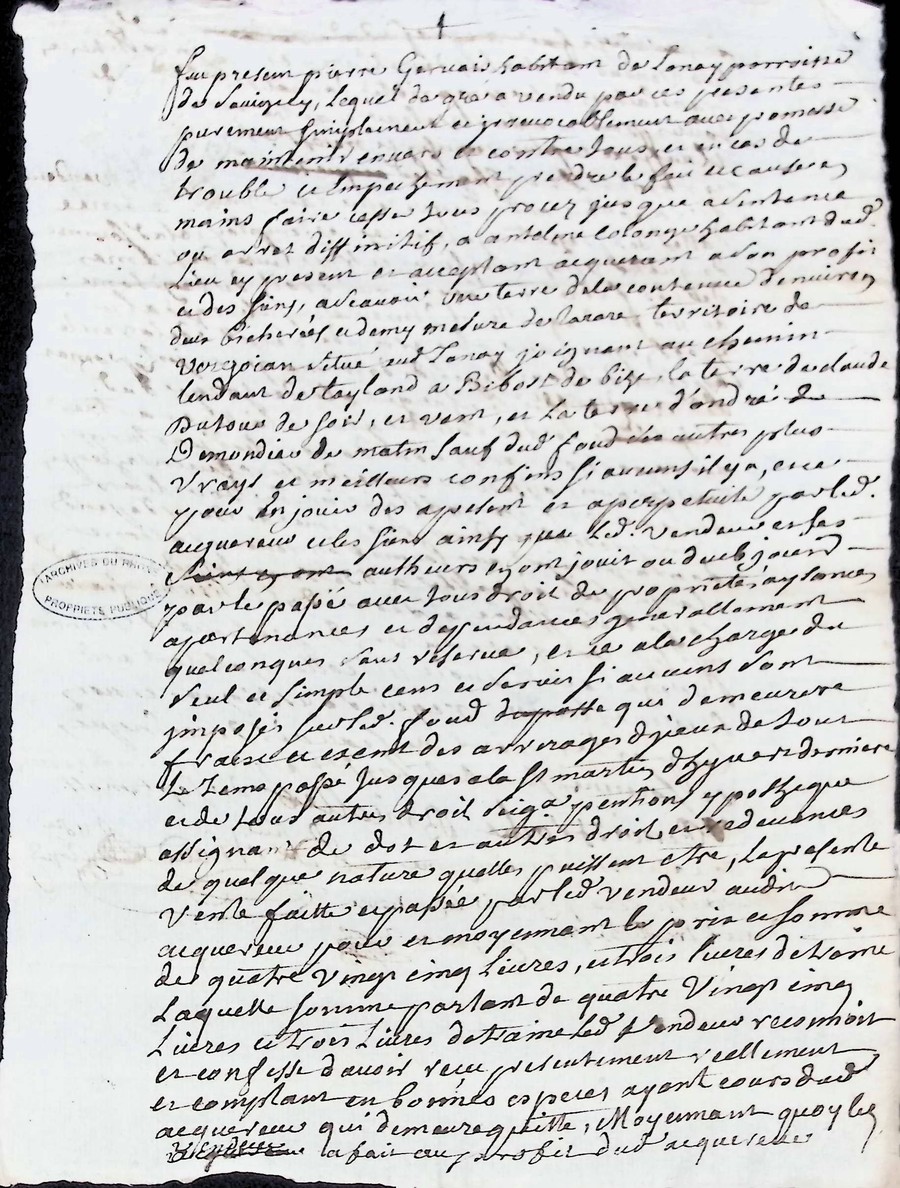 1
fut present pierre Gervais habitant de Lanay parroisse
de Savigny, Lequel de gre a vendu par ces presentes
purement simplement et jrrevocablement avec promesse
de maintenir envers et contre tous, et en cas de
trouble et Empechement prendre le fait et cause en
mains faire cesser tous procez jusque a sentence
ou arret diffinitif, a antoine Colonge habitant dud.
Lieu cy present et acceptant acquerant a son profit
et des siens, ascavoir une terre de la contenue d'environ
deux bicherées et demy mesure de larare territoire de
situé aud Lanay joignant au chemin
tendant de a Bibost de bize, la terre de claude
Dutour de soir, et vent, et La terre d'andré
Demondion de matin sauf dud. fond ses autres plus
Vrays et meilleurs confins si aucuns il y a, et ce
pour En jouir des apresent et aperpetuité par led.
acquereur et les siens ainsy que led. vendeur et ses
autheurs en ont jouit ou dueb jouir
par le passé avec tous droit de proprietés aysances
apartenances et dependances generallement
quelconques sans reserve, et ce a la charge du
seul et simple cens et servis si aucuns sont
jmposés sur led. fond qui demeurera
franc et exent des arrerages d'jceux de tout
Le tems passé jusques a la st martin d'hyver derniere
et de tous autres droit seig.x pentions ypotheque
assignant de dot et autres droit et redevances
de quelque nature quelles puissent etre, La presente
Vente faitte et passée par led. vendeur audit
acquereur pour et moyennant le prix et somme
de quatre vingt cinq Livres, et trois livres d'etraine
Laquelle somme partant de quatre Vingt cinq
Livres et trois Livres d'etraine Led. Vendeur reconnoit
et confesse d'avoir receu presentement reellement
et comptant en bonnes especes ayant cours dud.
acquereur qui demeure quitte, Moyennant quoy led
vendeur la fait au profit dud. acquereur
ARCHIVES DU RHÔNE
PROPRIÉTÉ PUBLIQUE